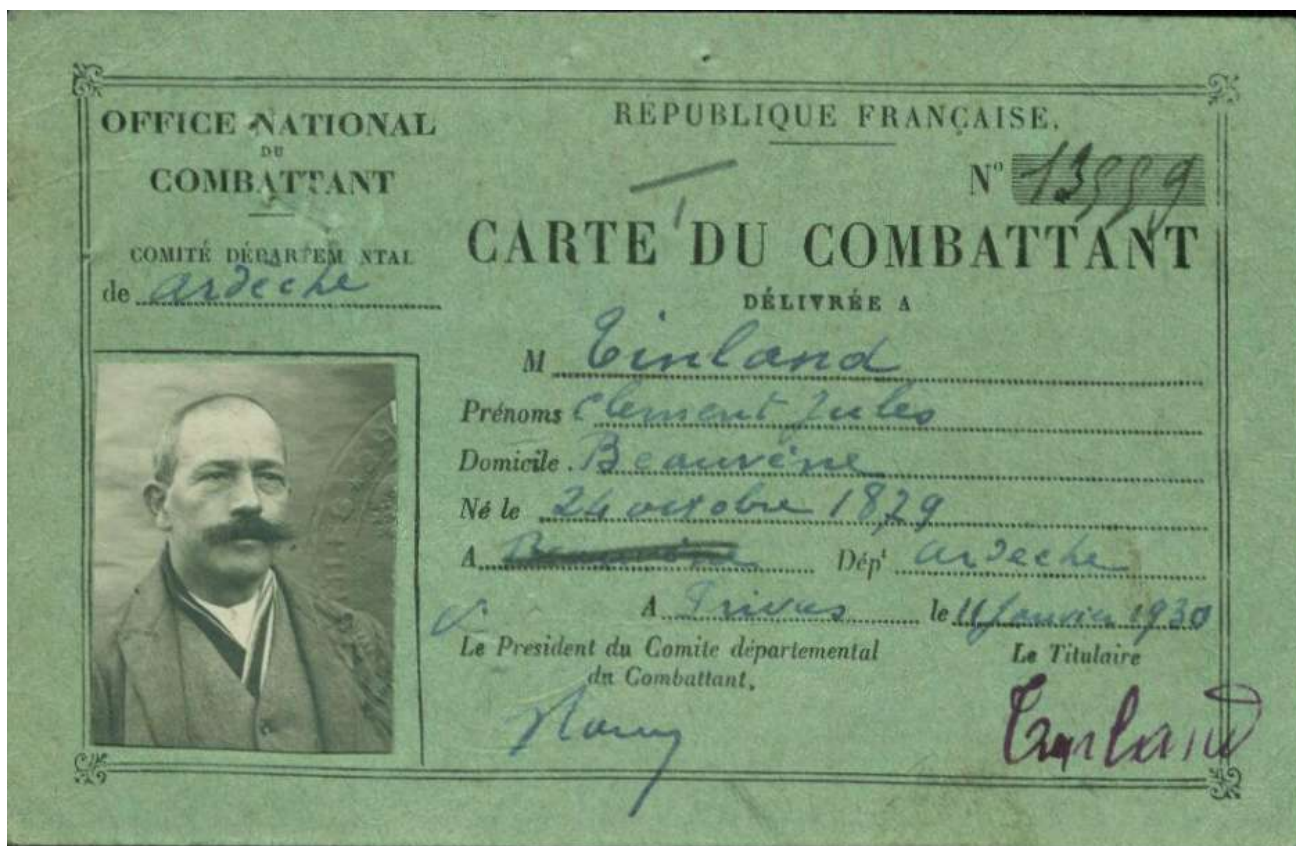 OFFICE NATIONAL
DU
COMBATTANT
COMITÉ DÉPARTEM NTAL
de ardeche
RÉPUBLIQUE FRANÇAISE.
N° 13559
CARTE DU COMBATTANT
DÉLIVRÉE A
M Tinland
Prénoms Clement Jules
Domicile Beauvène
Né le 24 octobre 1879
A Beauvène Dépt ardeche
A Privas le 11 janvier 1930
Le President du Comite départemental
du Combattant,
Le Titulaire
Tinland